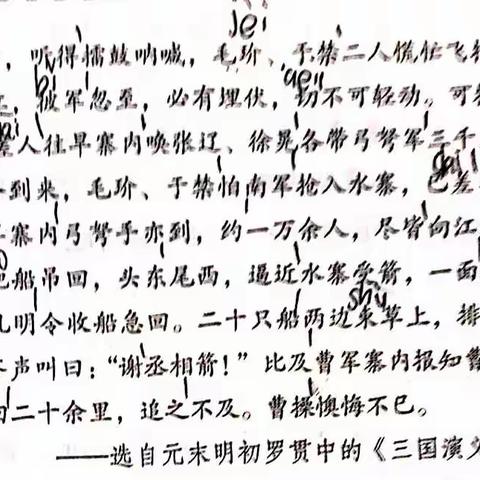 jei
，听得擂鼓呐喊，毛玠、于禁二人慌忙飞
，彼军忽至，必有埋伏，切不可轻动。可
差人往旱寨内唤张辽、徐晃各带弓弩军三千
到来，毛玠、于禁怕南军抢入水寨，已差
寨内弓弩手亦到，约一万余人，尽皆向江
把船吊回，头东尾西，逼近水寨受箭，一面
孔明令收船急回。二十只船两边束草上，排
shù
声叫曰：“谢丞相箭！”比及曹军寨内报知曹
回二十余里，追之不及。曹操懊悔不已。
——选自元末明初罗贯中的《三国演义